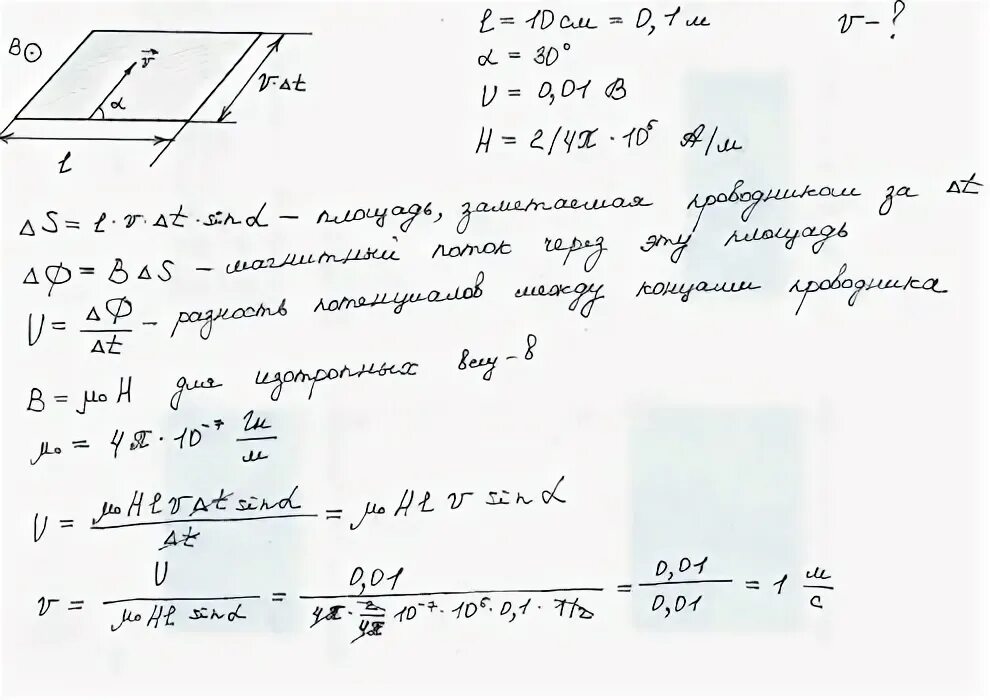 B⊙
v⃗
α
v·Δt
l
l = 10 см = 0,1 м
v - ?
α = 30°
U = 0,01 В
H = 2/4π · 10⁶ А/м
ΔS = l · v · Δt · sin α – площадь, заметаемая проводником за Δt
ΔФ = B ΔS – магнитный поток через эту площадь
U = ΔФ/Δt – разность потенциалов между концами проводника
B = μ₀ H для изотропных вещ-в
μ₀ = 4π · 10⁻⁷ Гн/м
U = μ₀ H l v Δt sin α / Δt = μ₀ H l v sin α
v = U / μ₀ H l sin α = 0,01 / 4π · 2/4π 10⁻⁷ · 10⁶ · 0,1 · 1/2 = 0,01/0,01 = 1 м/с